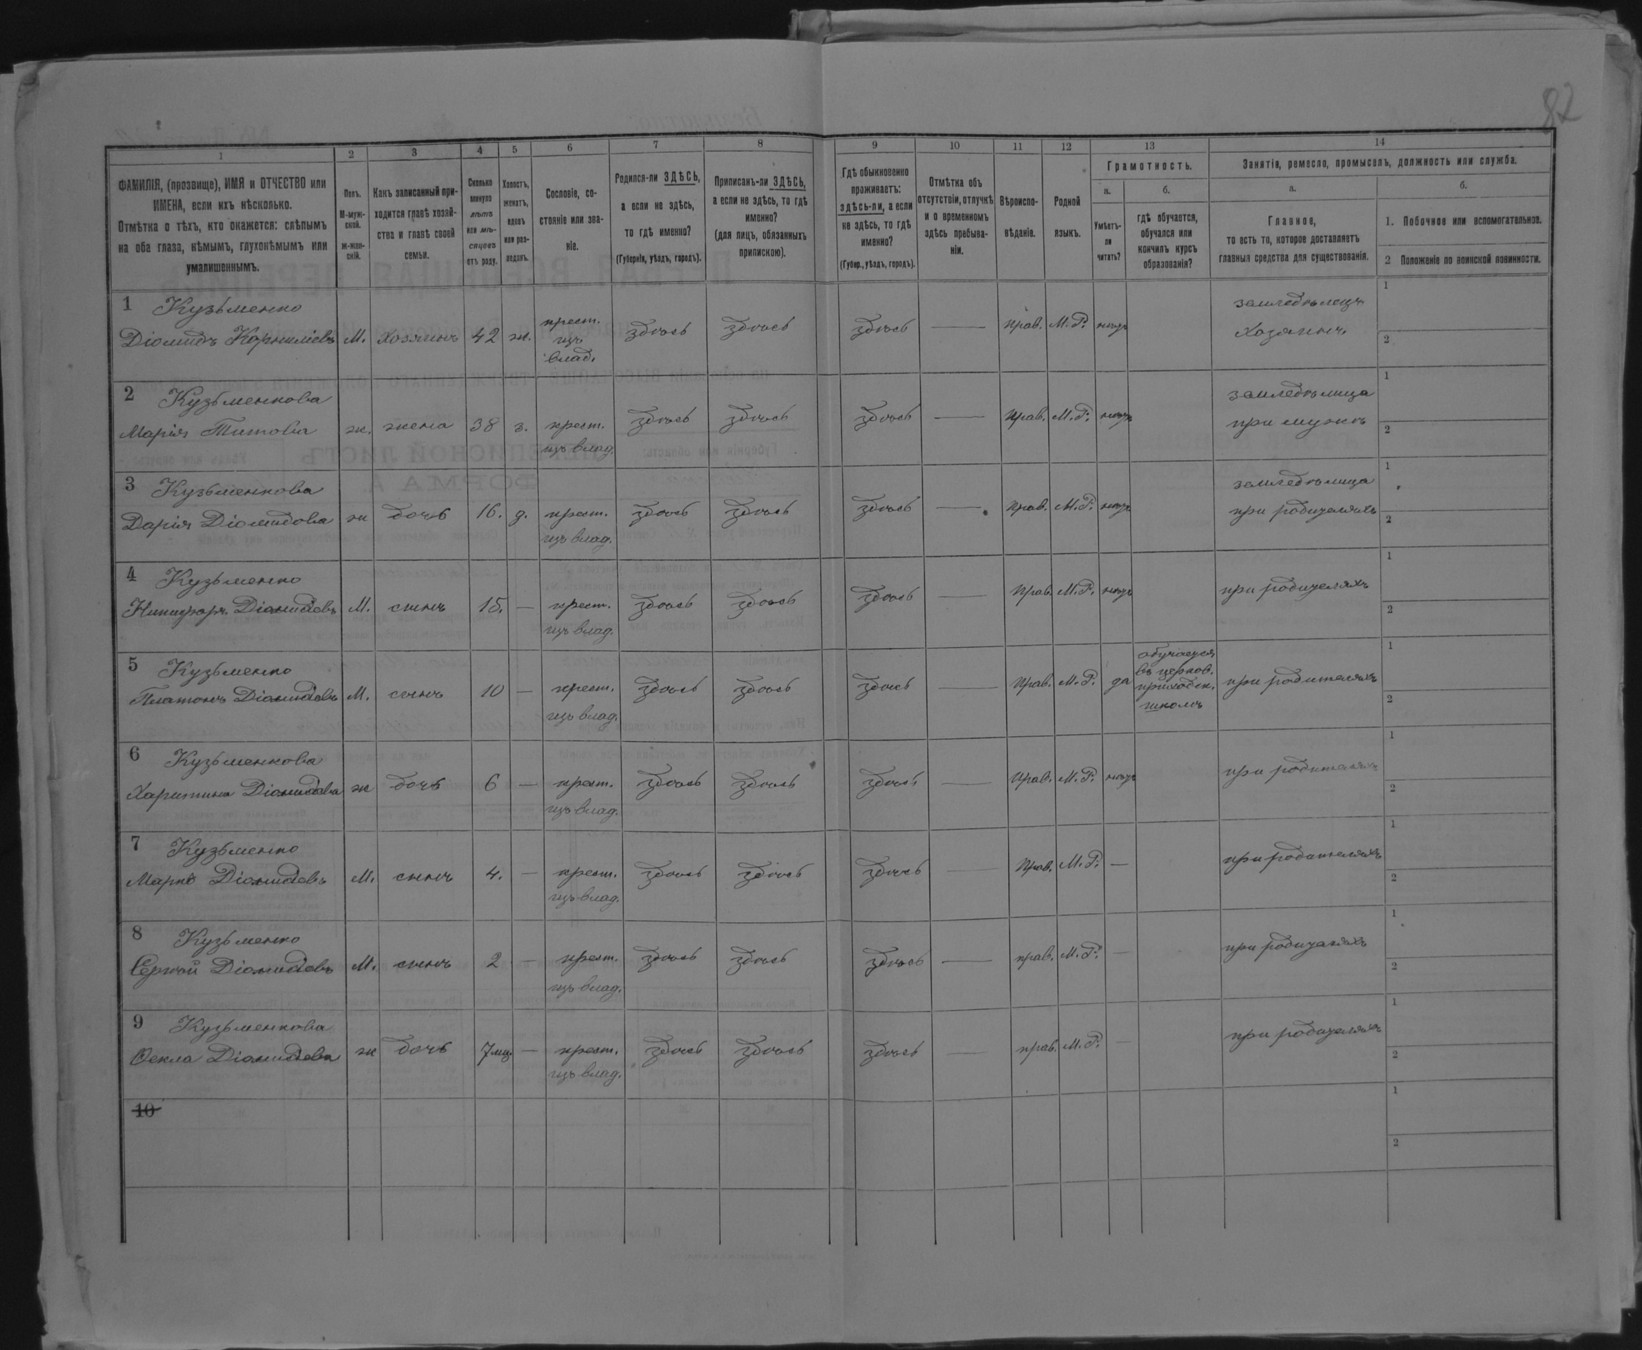 82
1 2 3 4 5 6 7 8 9 10 11 12 13 14
ФАМИЛІЯ, (прозвище), ИМЯ и ОТЧЕСТВО или
ИМЕНА, если ихъ нѣсколько.
Отмѣтка о тѣхъ, кто окажется: слѣпымъ
на оба глаза, нѣмымъ, глухонѣмымъ или
умалишеннымъ.
Полъ.
М-муж-
ской.
ж-жен-
скій.
Какъ записанный при-
ходится главѣ хозяй-
ства и главѣ своей
семьи.
Сколько
минуло
лѣтъ
или мѣ-
сяцевъ
отъ роду.
Холостъ,
женатъ,
вдовъ
или раз-
веденъ.
Сословіе, со-
стояніе или зва-
ніе.
Родился-ли ЗДѢСЬ,
а если не здѣсь,
то гдѣ именно?
(Губернія, уѣздъ, городъ).
Приписанъ-ли ЗДѢСЬ,
а если не здѣсь, то гдѣ
именно?
(для лицъ, обязанныхъ
припискою).
Гдѣ обыкновенно
проживаетъ:
здѣсь-ли, а если
не здѣсь, то гдѣ
именно?
(Губер., уѣздъ, городъ).
Отмѣтка объ
отсутствіи, отлучкѣ
и о временномъ
здѣсь пребыва-
ніи.
Вѣроиспо-
вѣданіе.
Родной
языкъ.
Грамотность.
а.
Умѣетъ-
ли
читать?
б.
гдѣ обучается,
обучался или
кончилъ курсъ
образованія?
Занятія, ремесло, промыселъ, должность или служба.
а.
Главное,
то есть то, которое доставляетъ
главныя средства для существованія.
б.
1. Побочное или вспомогательное.
2 Положеніе по воинской повинности.
1 Кузьменко
Діомидъ Корниліевъ М. хозяинъ 42 ж. крест. изъ влад. здѣсь здѣсь здѣсь — прав. М.Р. нѣтъ земледѣлецъ хозяинъ 1 2
2 Кузьменкова
Марія Титова ж. жена 38 з. крест. изъ влад. здѣсь здѣсь здѣсь — прав. М.Р. нѣтъ земледѣлица при мужѣ 1 2
3 Кузьменкова
Дарія Діомидова ж дочь 16. д. крест. изъ влад. здѣсь здѣсь здѣсь — прав. М.Р. нѣтъ земледѣлица при родителяхъ 1 2
4 Кузьменко
Никифоръ Діомидовъ М. сынъ 15. — крест. изъ влад. здѣсь здѣсь здѣсь — прав. М.Р. нѣтъ при родителяхъ 1 2
5 Кузьменко
Платонъ Діомидовъ М. сынъ 10 — крест. изъ влад. здѣсь здѣсь здѣсь — прав. М.Р. да обучается въ церков. приходск. школѣ при родителяхъ 1 2
6 Кузьменкова
Харитина Діомидова ж дочь 6 — крест. изъ влад. здѣсь здѣсь здѣсь — прав. М.Р. нѣтъ при родителяхъ 1 2
7 Кузьменко
Марко Діомидовъ М. сынъ 4. — крест. изъ влад. здѣсь здѣсь здѣсь — прав. М.Р. — при родителяхъ 1 2
8 Кузьменко
Сергѣй Діомидовъ М. сынъ 2 — крест. изъ влад. здѣсь здѣсь здѣсь — прав. М.Р. — при родителяхъ 1 2
9 Кузьменкова
Ѳекла Діомидова ж дочь 7 мц. — крест. изъ влад. здѣсь здѣсь здѣсь прав. М.Р. — при родителяхъ 1 2
10 1 2